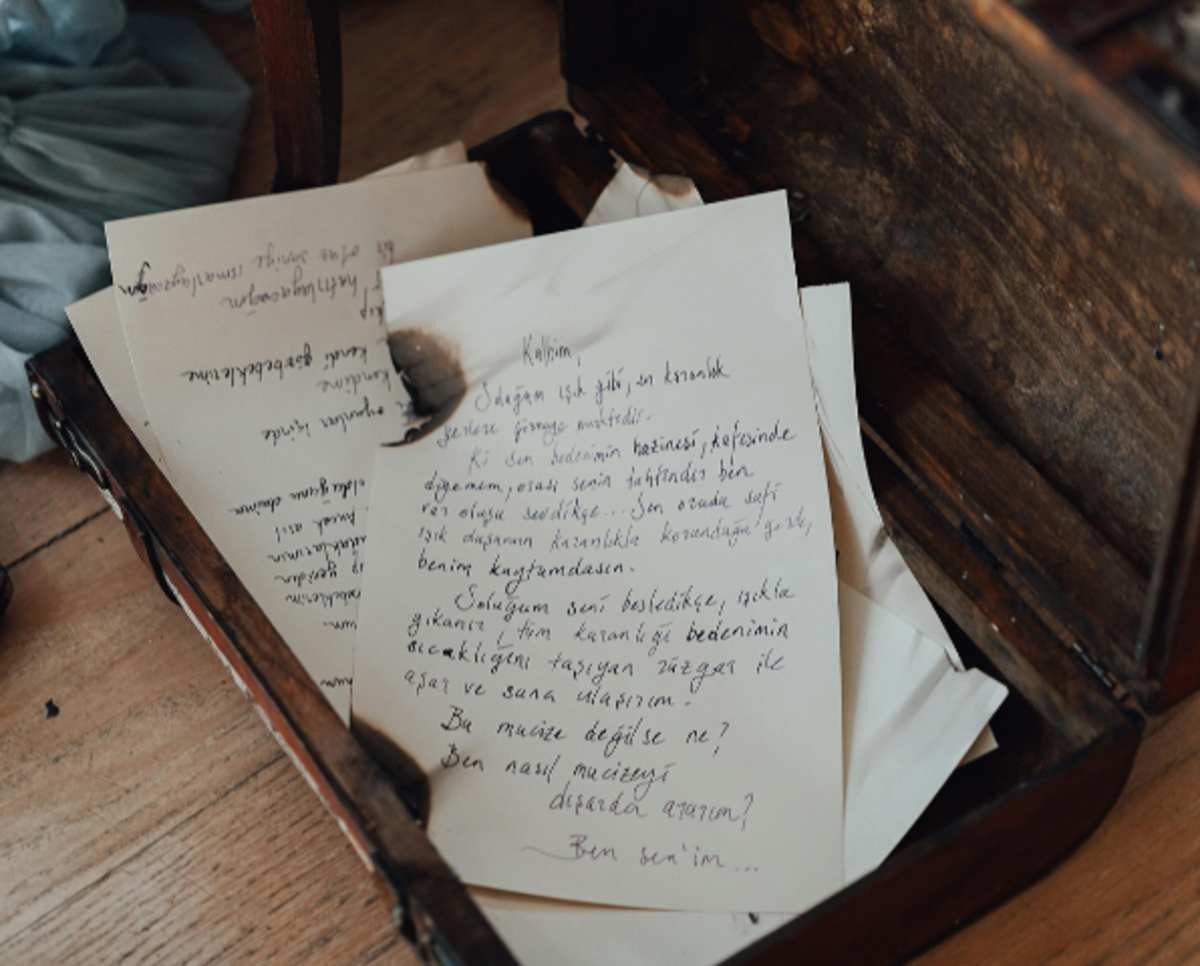 Kalbim,
Soluğum ışık gibi, en karanlık
yerlere girmeye muktedir.
Ki sen bedenimin hazinesi, kafesinde
diyemem, orası senin tahtındır ben
var oluşu sevdikçe... Sen orada safi
ışık duşunun karanlıkla korunduğu yerde,
benim kaytımdasın.
Soluğum seni besledikçe, ışıkla
yıkanır, tüm karanlığı bedenimin
sıcaklığını taşıyan rüzgar ile
aşar ve sana ulaşırım.
Bu mucize değilse ne?
Ben nasıl mucizeyi
dışarda ararım?
Ben sen'im...
ısmarlayacağım
hatırlayacağım
kendi gözbebeklerime
kendime
oyunlar içinde
olduğunu daima
Ancak asıl
yeniden